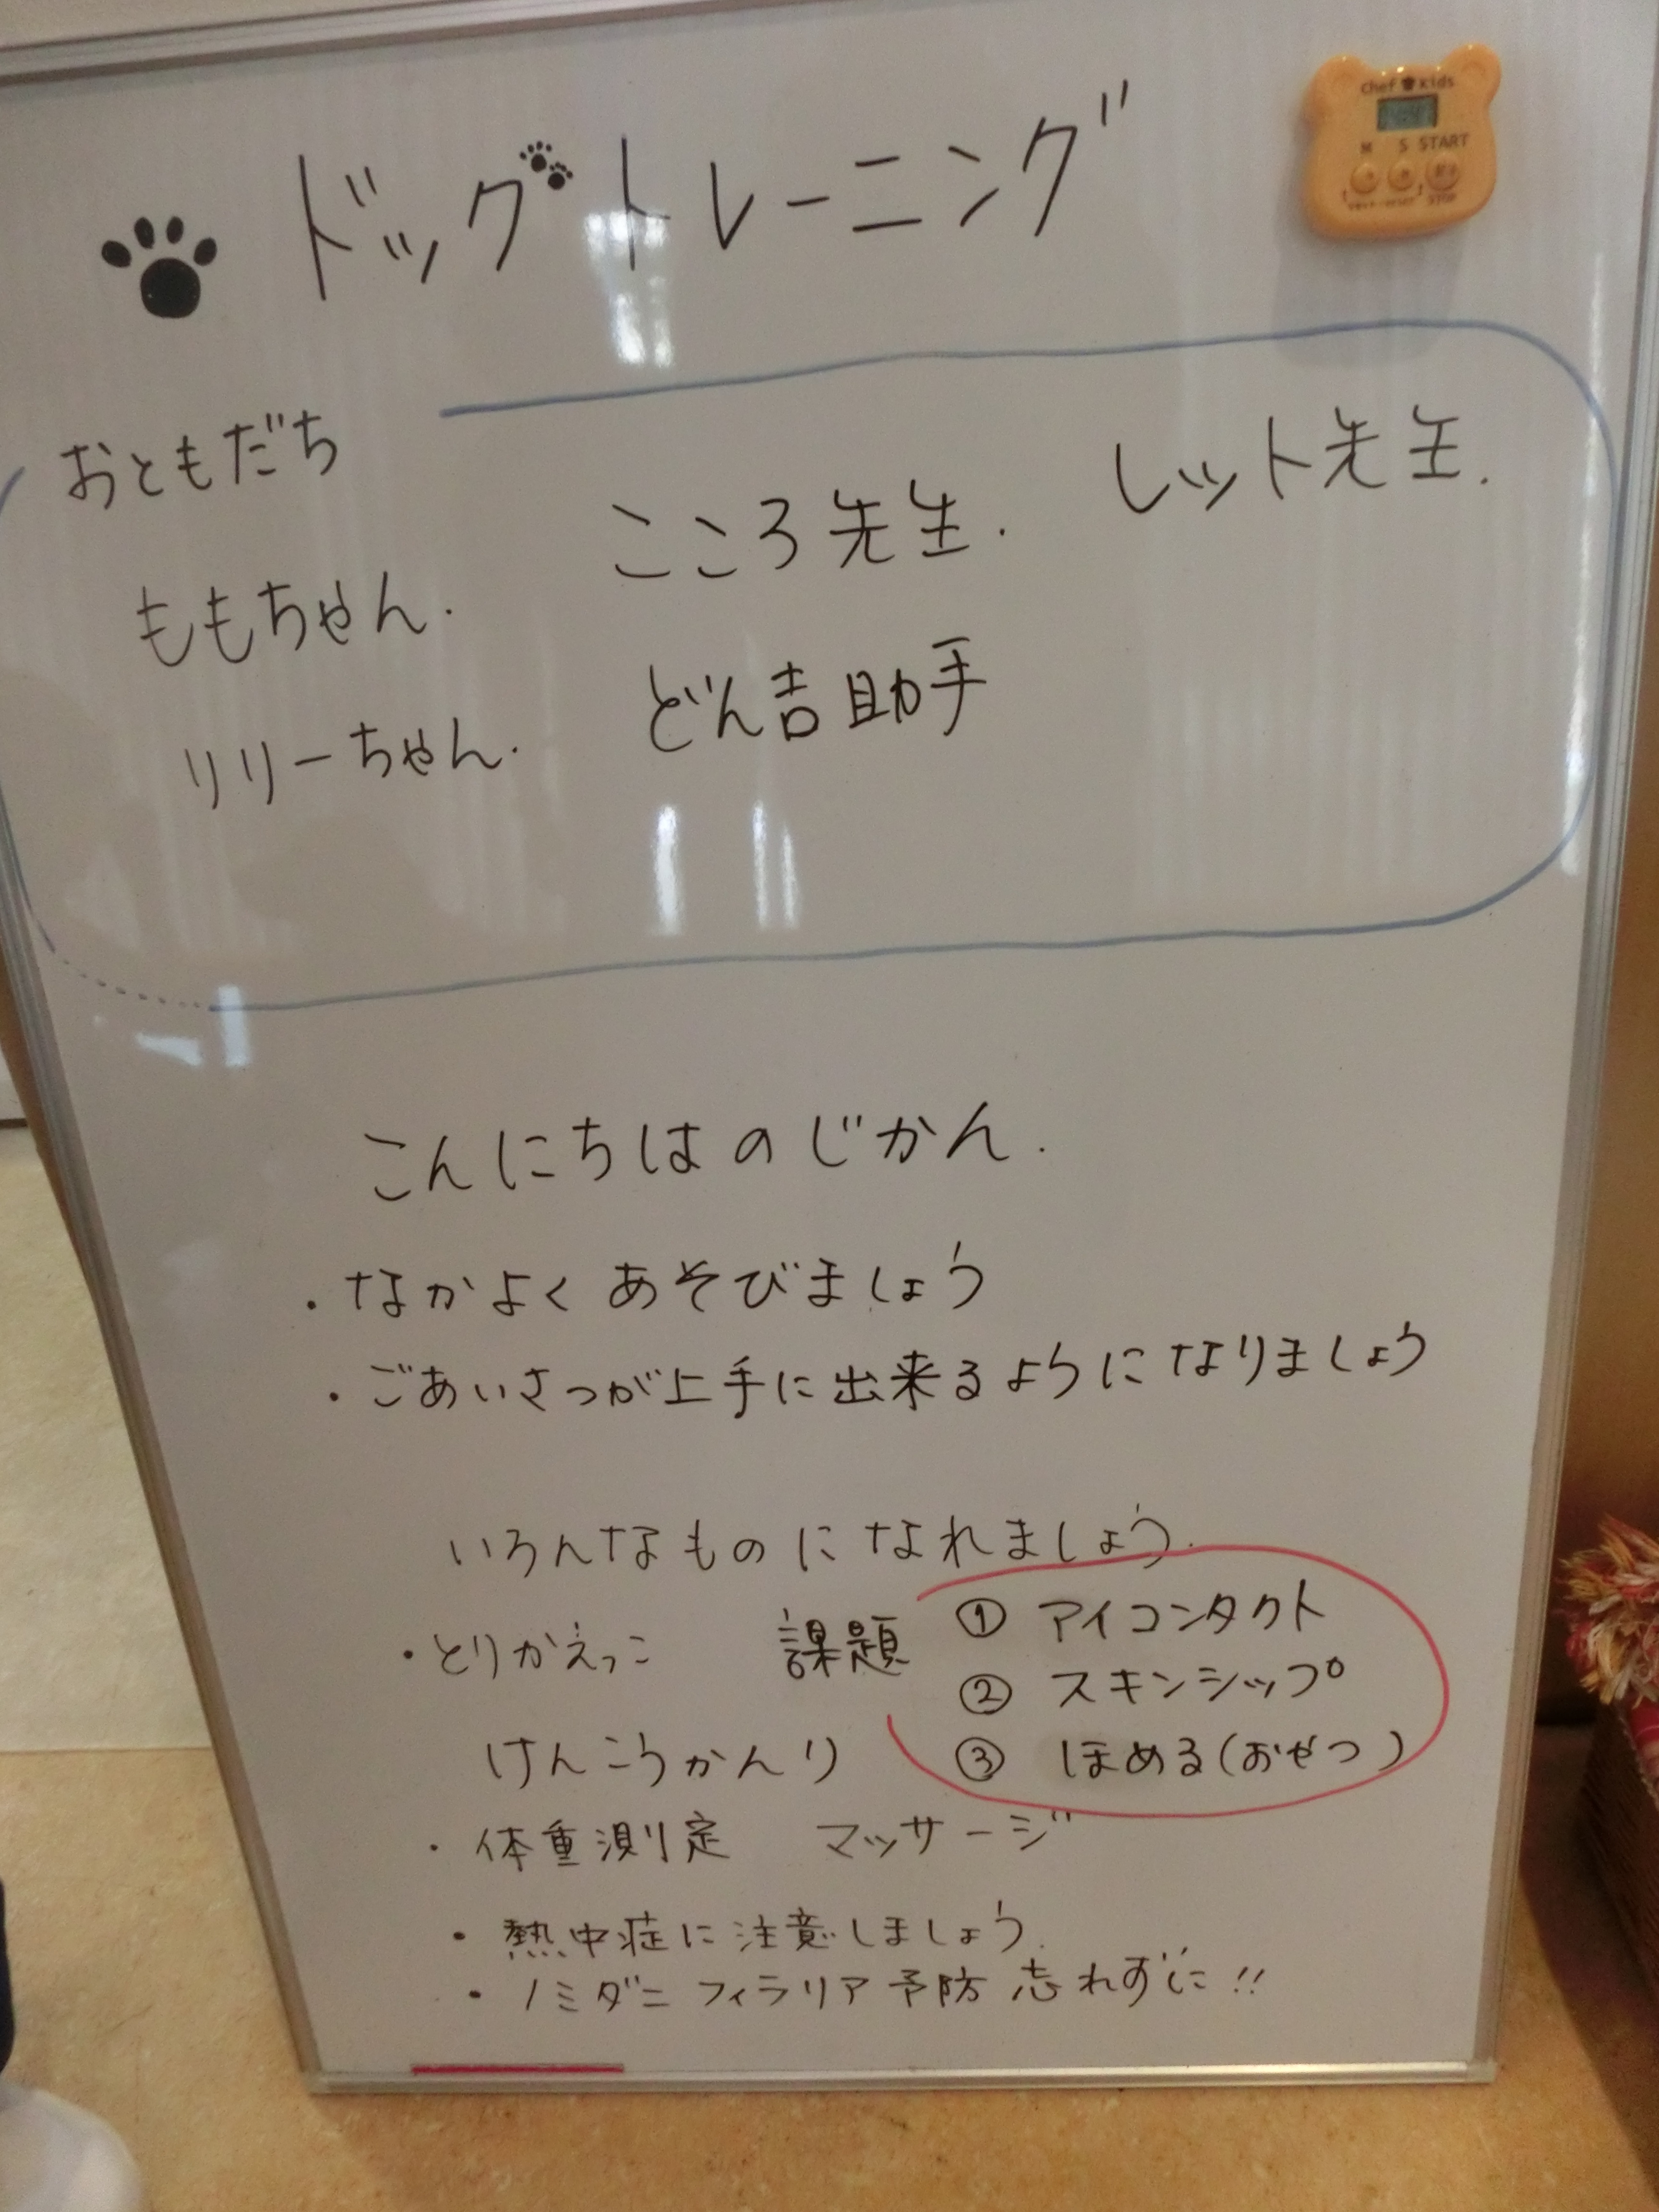 ドッグトレーニング
Chef Kids
M S START
おともだち
ももちゃん.
リリーちゃん.
こころ先生. レット先生.
どん吉助手
こんにちはのじかん.
・なかよくあそびましょう
・ごあいさつが上手に出来るようになりましょう
いろんなものになれましょう.
・とりかえっこ
課題
① アイコンタクト
② スキンシップ
③ ほめる(おやつ)
けんこうかんり
・体重測定 マッサージ
・熱中症に注意しましょう.
・ノミダニ フィラリア予防 忘れずに!!